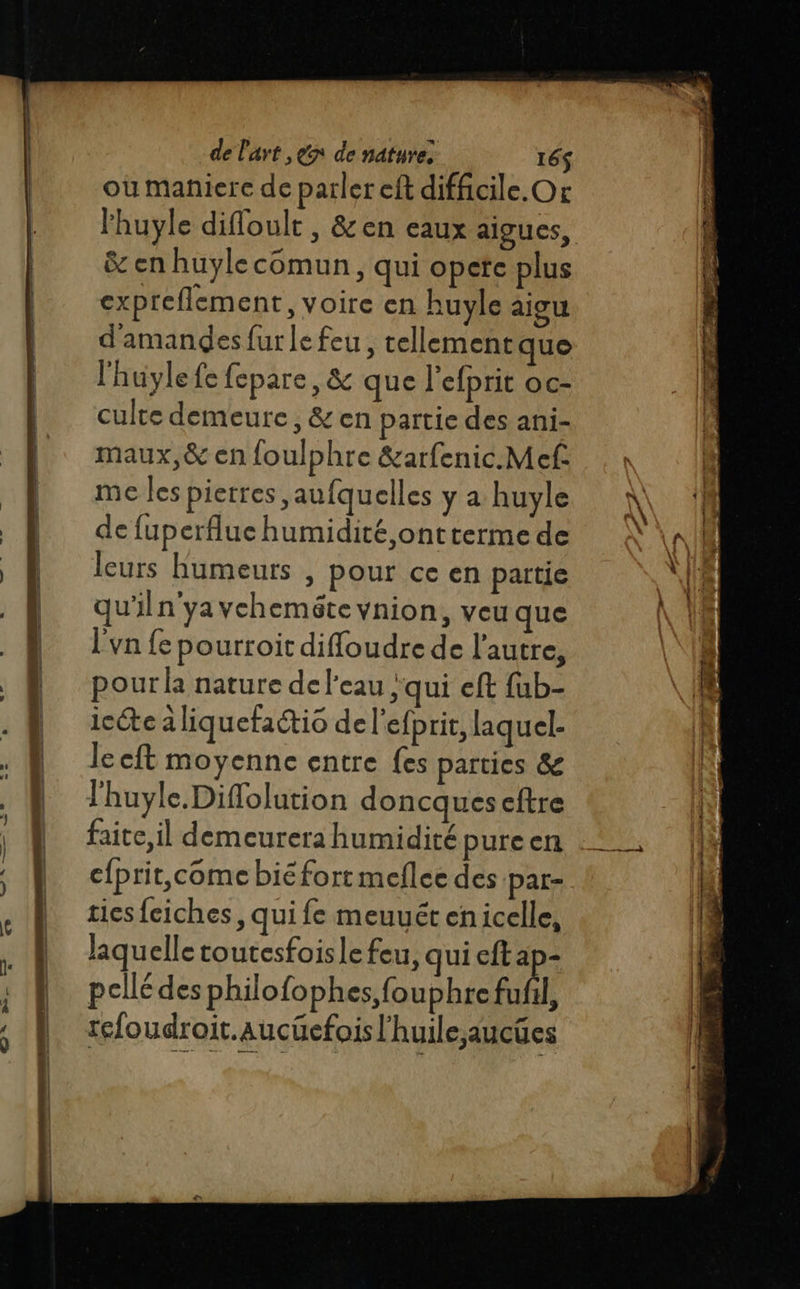 de l'art, & de nature. 165
ou maniere de parler eſt difficile. Or
l'huyle diſſoult, & en eaux aigues,
& en huyle cõmun, qui opere plus
expreſſement, voire en huyle aigu
d'amandes ſur le feu, tellement que
l'huyle ſe ſepare, & que l'eſprit oc-
culte demeure, & en partie des ani-
maux, & en ſoulphre & arſenic. Meſ-
me les pierres, auſquelles y a huyle
de ſuperflue humidité, ont terme de
leurs humeurs, pour ce en partie
qu'il n'ya vehemẽte vnion, veu que
l'vn ſe pourroit diſſoudre de l'autre,
pour la nature de l'eau, qui eſt ſub-
iecte à liquefactiõ de l'eſprit, laquel-
le eſt moyenne entre ſes parties &
l'huyle. Diſſolution doncques eſtre
faite, il demeurera humidité pure en
eſprit, cõme biẽ fort meſlee des par-
ties ſeiches, qui ſe meuuẽt en icelle,
laquelle toutesfois le feu, qui eſt ap-
pellé des philoſophes, ſouphre fuſil,
reſoudroit. aucũefois l'huile, aucũes